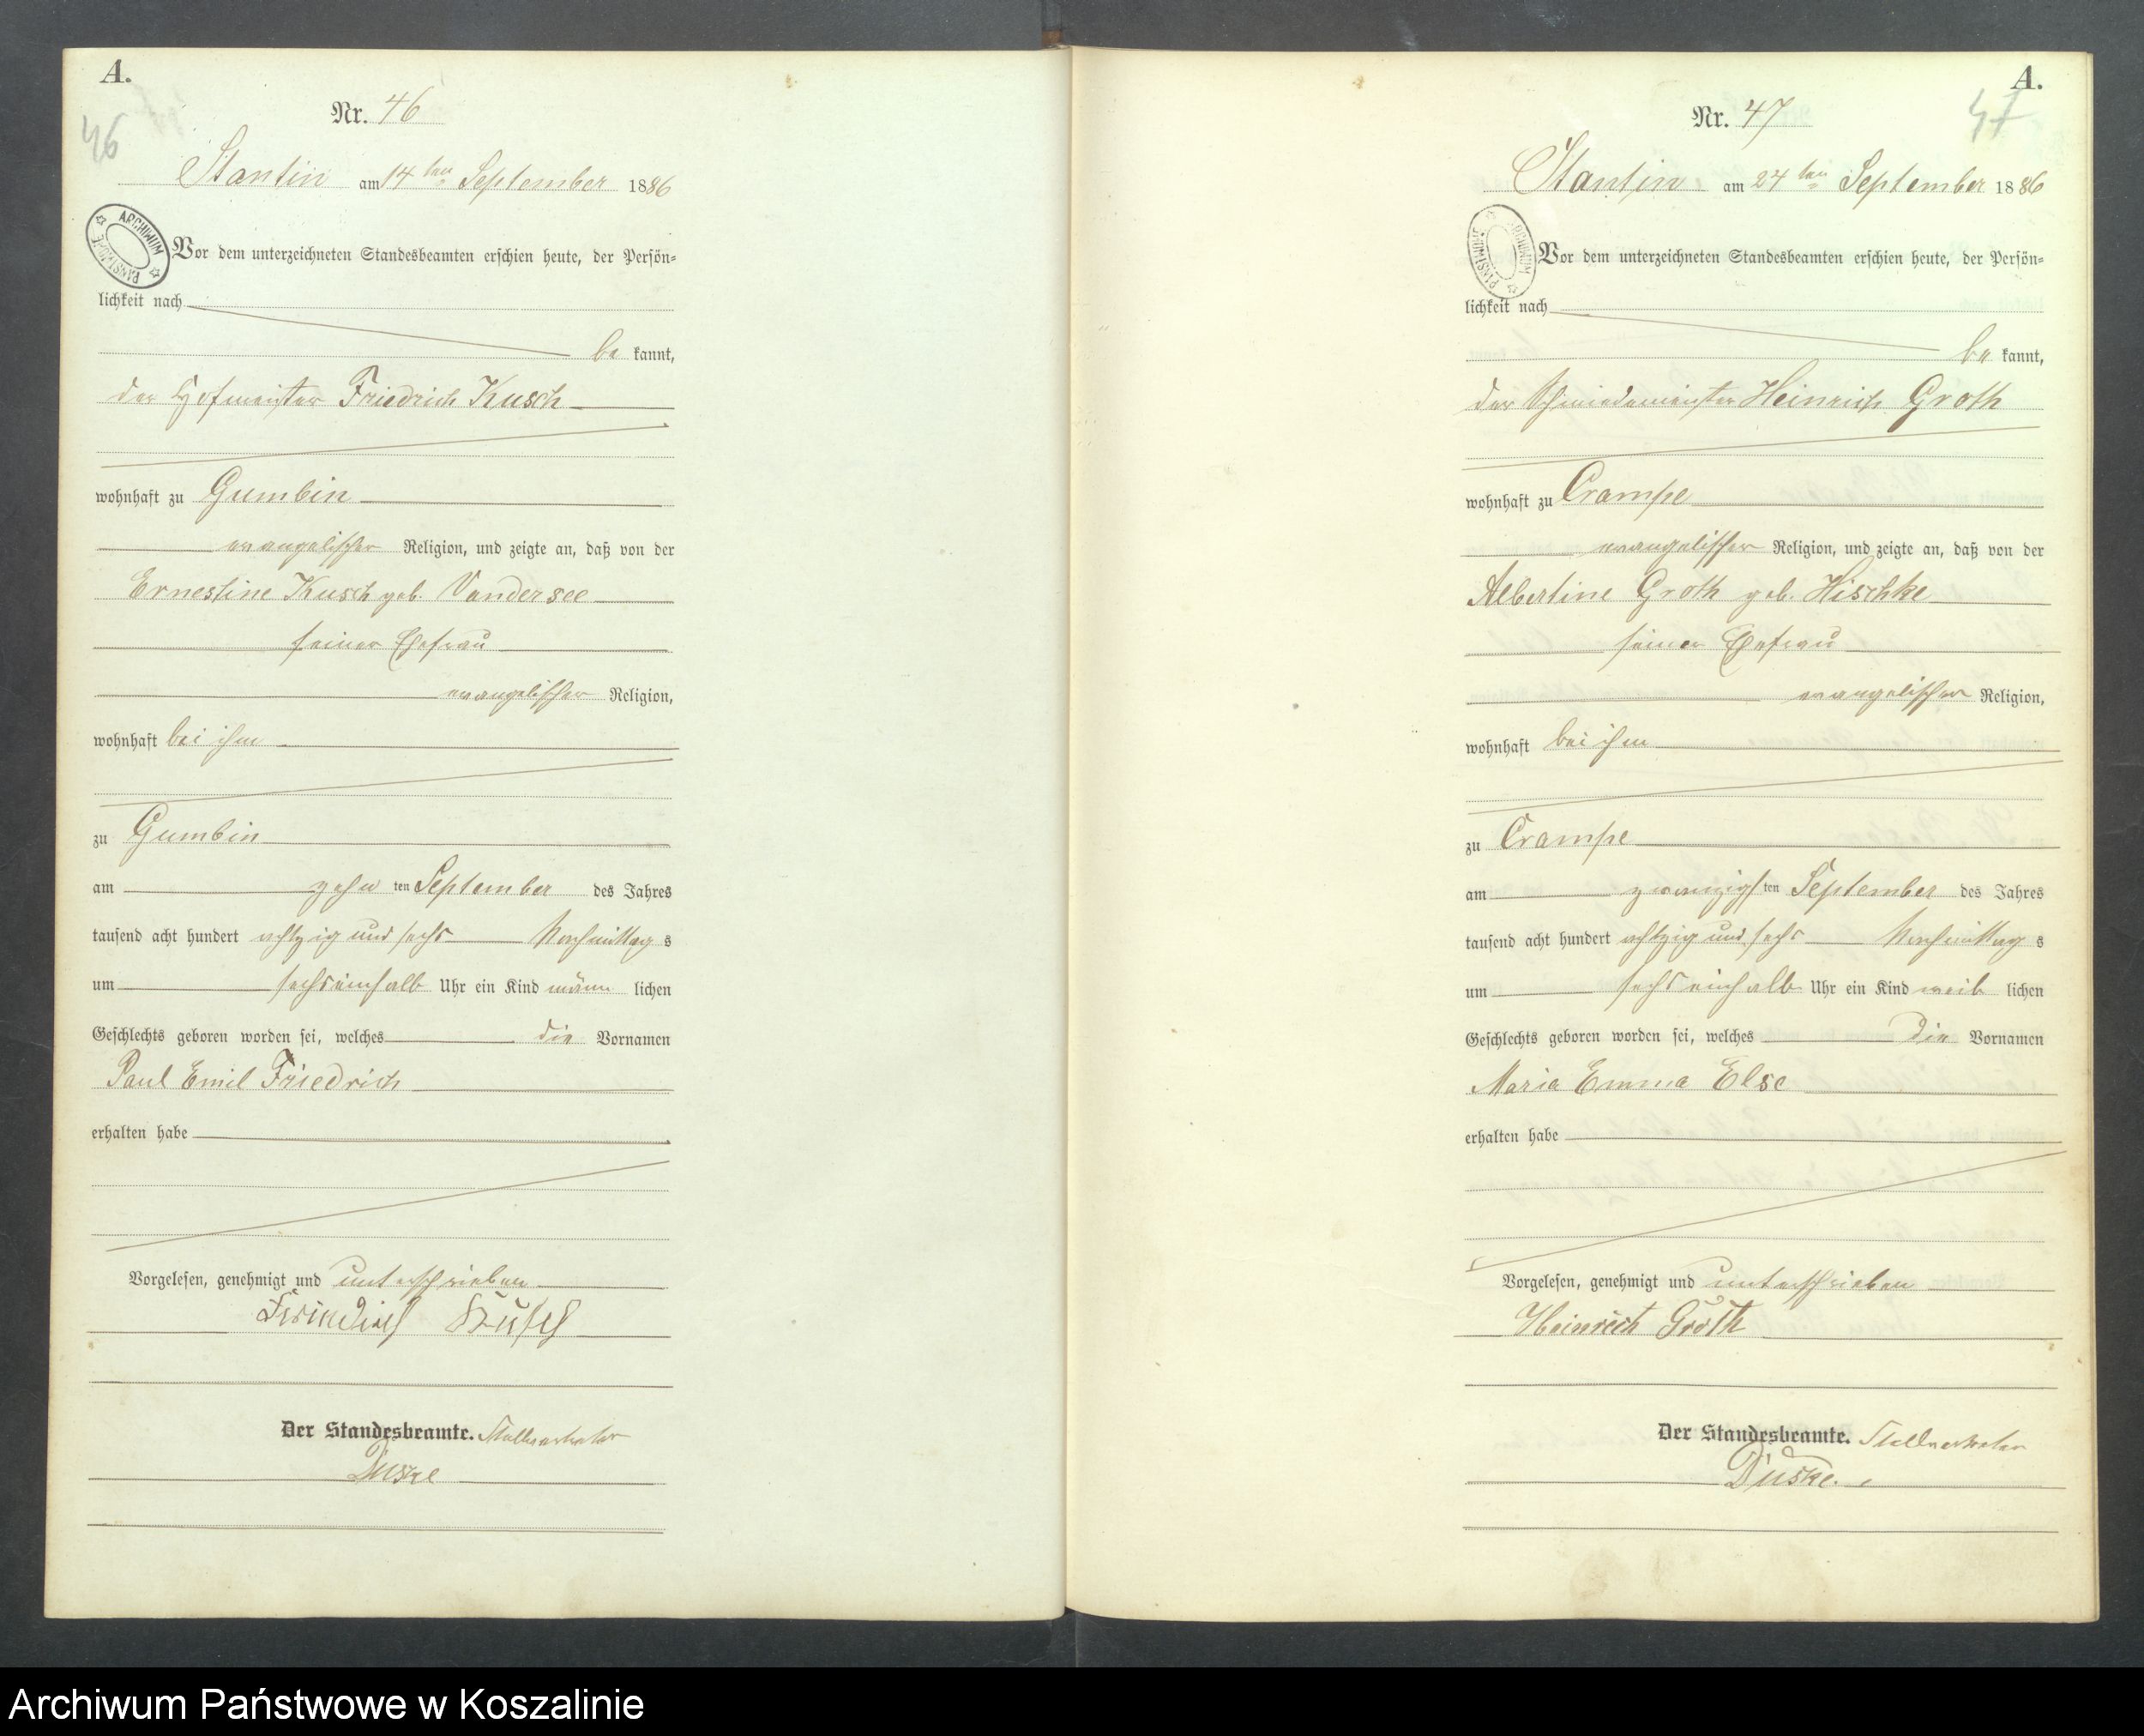 A.
46
Nr. 46
Stantin am 14ten September 1886
ARCHIWUM PAŃSTWOWE
Vor dem unterzeichneten Standesbeamten erschien heute, der Persön=
lichkeit nach
be kannt,
der Hofmeister Friedrich Kusch
wohnhaft zu Gumbin
evangelischer Religion, und zeigte an, daß von der
Ernestine Kusch geb. Vandersee
seiner Ehefrau
evangelischer Religion,
wohnhaft bei ihm
zu Gumbin
am zehn ten September des Jahres
tausend acht hundert achtzig und sechs Nachmittag s
um sechs einhalb Uhr ein Kind männ lichen
Geschlechts geboren worden sei, welches die Vornamen
Paul Emil Friedrich
erhalten habe
Vorgelesen, genehmigt und unterschrieben
Friedrich Kusch
Der Standesbeamte. Stellvertreter
Duske
A.
47
Nr. 47
Stantin am 24ten September 1886
ARCHIWUM PAŃSTWOWE
Vor dem unterzeichneten Standesbeamten erschien heute, der Persön=
lichkeit nach
be kannt,
der Schmiedemeister Heinrich Groth
wohnhaft zu Crampe
evangelischer Religion, und zeigte an, daß von der
Albertine Groth geb. Hischke
seiner Ehefrau
evangelischer Religion,
wohnhaft bei ihm
zu Crampe
am zwanzigs ten September des Jahres
tausend acht hundert achtzig und sechs Nachmittag s
um sechs einhalb Uhr ein Kind weib lichen
Geschlechts geboren worden sei, welches die Vornamen
Maria Emma Else
erhalten habe
Vorgelesen, genehmigt und unterschrieben
Heinrich Groth
Der Standesbeamte. Stellvertreter
Duske.
Archiwum Państwowe w Koszalinie